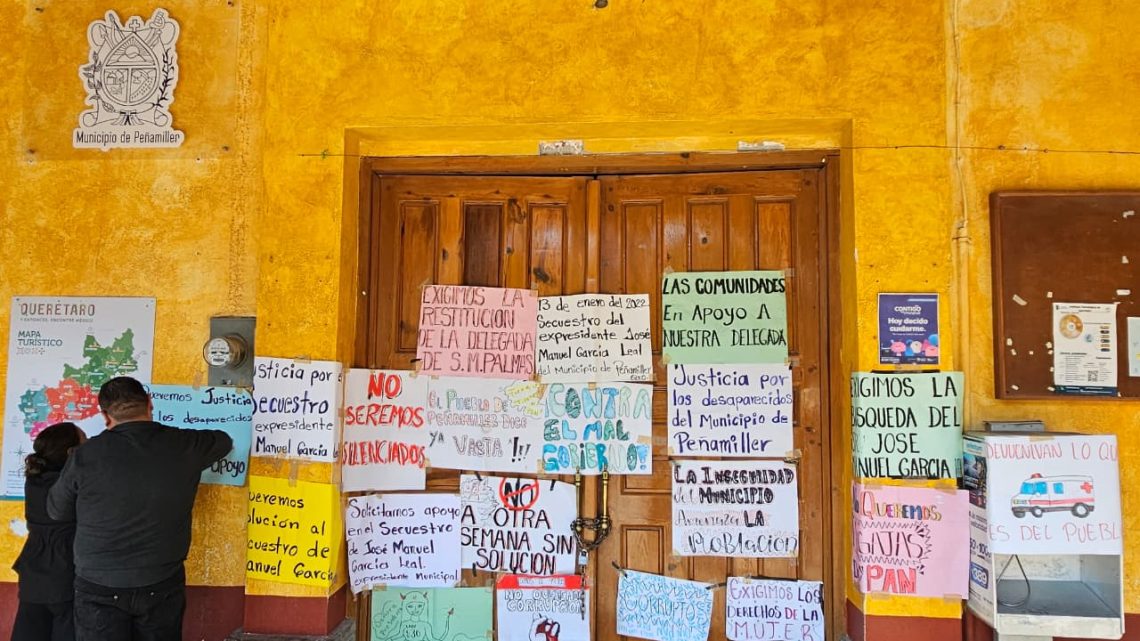 Municipio de Peñamiller
QUERÉTARO
MAPA
TURÍSTICO
Queremos Justicia
los desaparecidos
apoyo
Justicia por
Secuestro
expresidente
Manuel García
Queremos
solución al
secuestro de
Manuel García
NO
SEREMOS
SILENCIADOS
EXIGIMOS LA
RESTITUCION
DE LA DELEGADA
DE S.M.PALMAS
13 de enero del 2022
Secuestro del
expresidente José
Manuel García Leal
del Municipio de Peñamiller
LAS COMUNIDADES
En Apoyo A
NUESTRA DELEGADA
EL PUEBLO DE
PEÑAMILLER DICE
YA VASTA !!!
CONTRA
EL MAL
GOBIERNO!
Justicia por
los desaparecidos
del Municipio de
Peñamiller
Solicitamos apoyo
en el Secuestro
de José Manuel
García Leal.
expresidente Municipal
NO
A OTRA
SEMANA SIN
SOLUCIÓN
LA INSEGURIDAD
del MUNICIPIO
Amenaza LA
POBLACION
CORRUPTOS
EXIGIMOS LOS
DERECHOS DE LA
MUJER
CONTIGO
Hoy decido
cuidarme.
EXIGIMOS LA
BUSQUEDA DEL
JOSE
MANUEL GARCIA
QUEREMOS
PAN
DEVUELVAN LO QUE
ES DEL PUEBLO